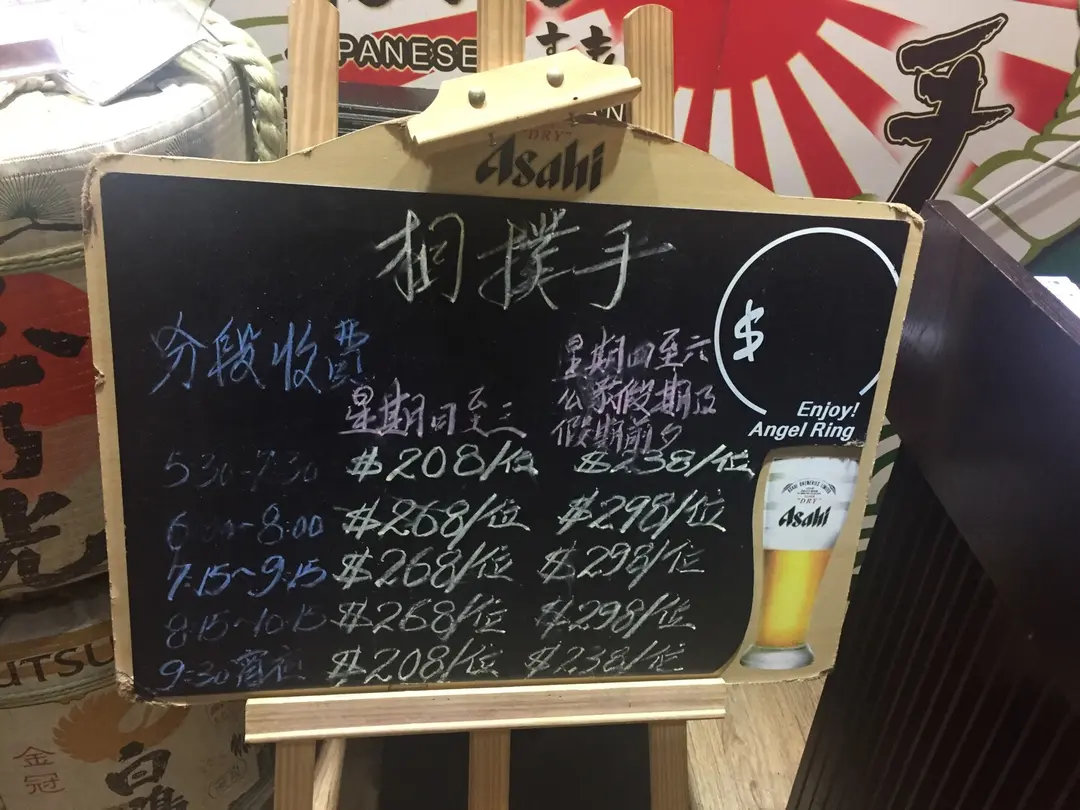 JAPANESE
"DRY"
Asahi
相撲手
$
分段收費
星期日至三
星期四至六
公眾假期及
假期前夕
Enjoy!
Angel Ring
5:30-7:30 $208/位 $238/位
6:00-8:00 $268/位 $298/位
7:15~9:15 $268/位 $298/位
8:15~10:15 $268/位 $298/位
9:30宵夜 $208/位 $238/位
"DRY"
Asahi
金冠
白鶴